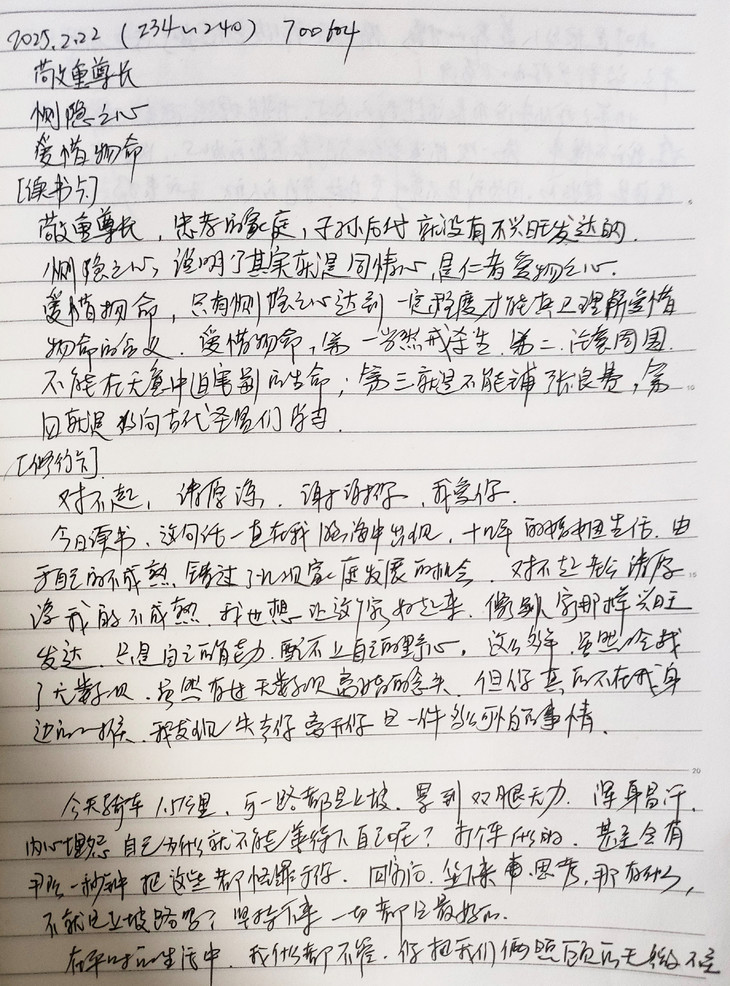 2025.2.22 (234~240) 700604
敬重尊长
恻隐之心
爱惜物命
[读书点]
敬重尊长，忠孝的家庭，子孙后代就没有不兴旺发达的.
恻隐之心，说明了其实就是同情心，是仁者爱物之心.
爱惜物命，只有恻隐之心达到一定程度才能真正理解爱惜
物命的含义. 爱惜物命，第一当然戒杀生. 第二. 注意周围.
不能在无意中迫害别的生命；第三就是不能铺张浪费，第
四就是必向古代圣贤们学习.
[修行点]
对不起，请原谅. 谢谢你，我爱你.
今日读书、这句话一直在我脑海中出现，十几年的婚姻生活. 由
于自己的不成熟. 错过了几次家庭发展的机会. 对不起老公请原
谅我的不成熟. 我也想让这个家好起来. 像别人家那样兴旺
发达. 只是自己的能力. 配不上自己的野心，这么多年. 虽然吵我
了无数次. 虽然有过无数次离婚的念头. 但你真的不在我身
边的时候. 我发现失去你离开你是一件多么可怕的事情.
今天骑车1.5公里，另一路都是上坡. 累到双腿无力. 浑身冒汗.
内心埋怨自己为什么就不能等待下自己呢？打个车什么的. 甚至会有
那么一秒钟把这些都怪罪于你. 回家后. 坐下来 思考，那有什么，
不就是上坡路吗？坚持下来一切都是最好的.
在平时的生活中. 我什么都不管. 你把我们俩照顾的无微不至